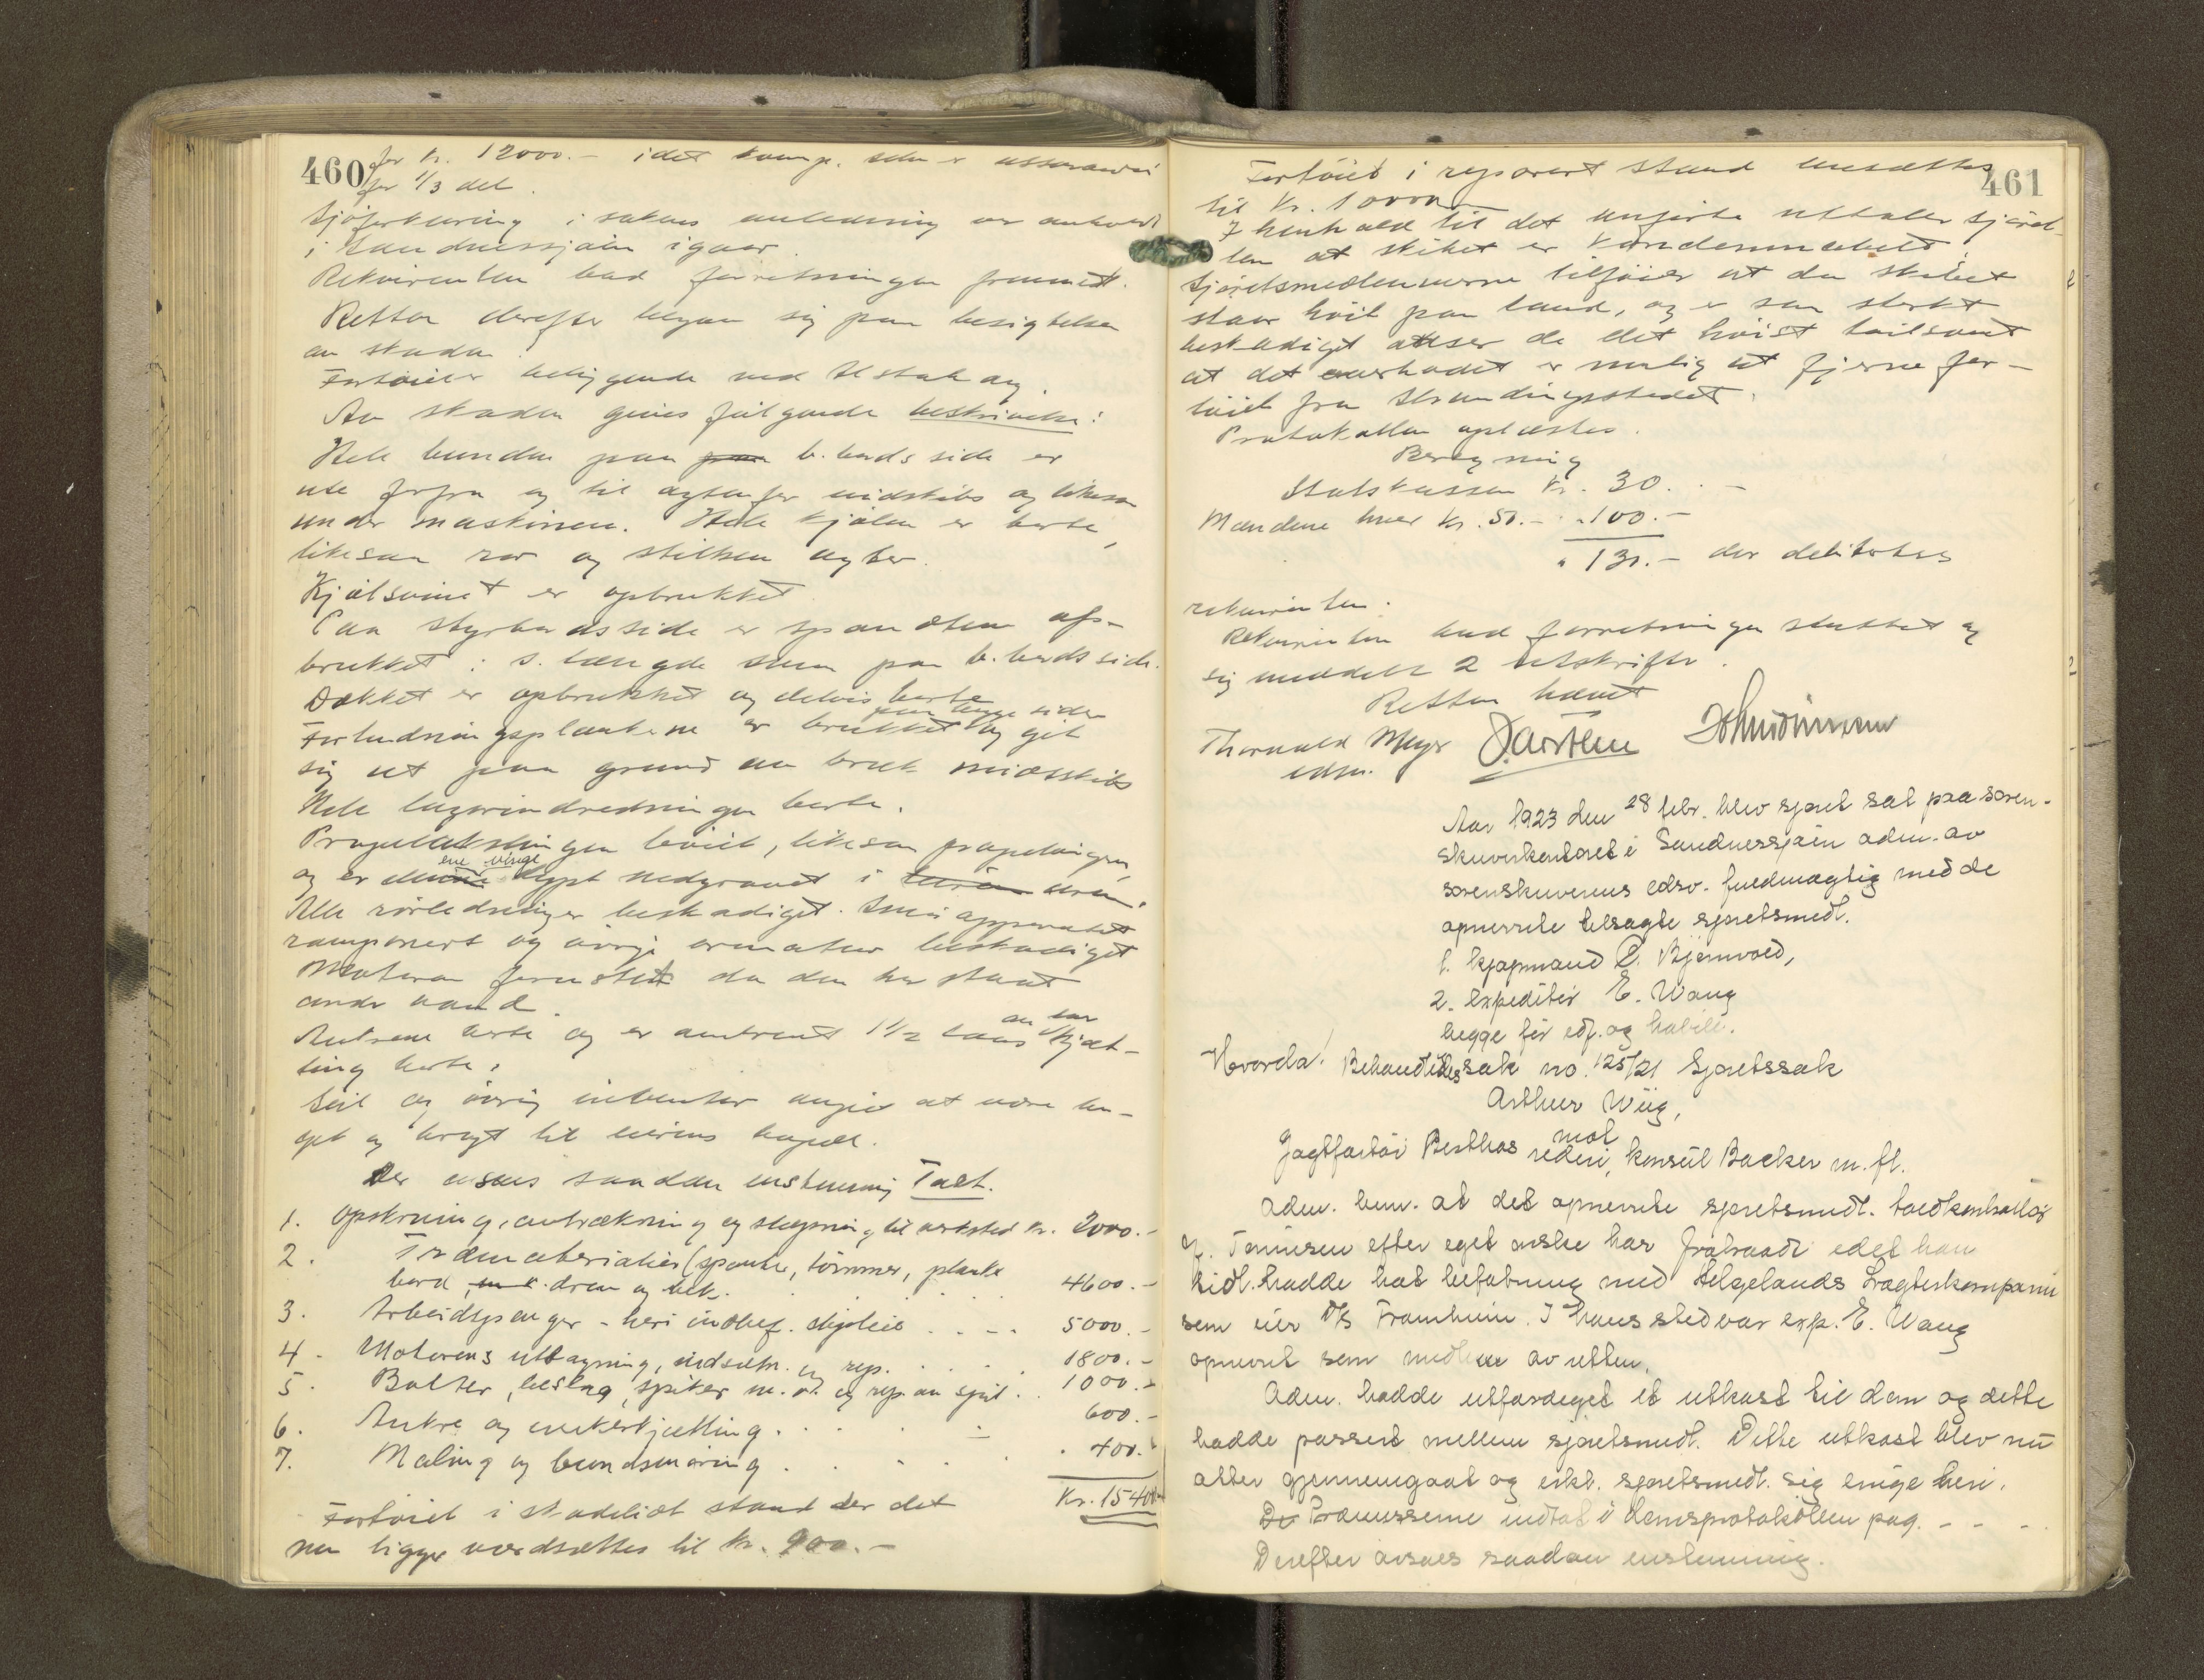 460
for kr. 12000.- idet komp. selv er assurandør
for 1/3 del.
Sjøforklaring i sakens anledning er avholdt
i Sandnessjøen igaar.
Rekvirenten bad forretningen fremmet.
Retten derefter begav sig paa besigtelse
av skaden.
Fartøiet er beliggende ved Alstahaug.
Av skaden gives følgende beskrivelse:
Hele bunden paa paa b.bords side er
ute forfra og til agtenfor midtskibs og likesaa
under maskinen. Hele kjølen er borte,
likesaa ror og stilken agter.
Kjølsvinet er opbrukket.
Paa styrbords side er spanterne af-
brukket i s. længde som paa b.bords side.
Dækket er opbrukket og delvis borte
Forhudningsplankene er brukket paa begge sider og git
sig ut paa grund av bruk midtskibs
Hele lugarindredningen borte.
Propelakslingen bøiet, likesaa propelvingen,
og er denne ene vinge dypt nedgravet i uren.
Alle rørledninger beskadiget. Smøreapparatet
ramponert og øvrig armatur beskadiget
Motoren forrustet da den har staat
under vand.
Ankrene borte og er omtrent 1 1/2 laas av tor kjæt-
ting borte.
Seil og øvrig inventar angies at være ber-
get og bragt til eierens bopæl.
Der avsaes saadan enstemmig Takst.
1. Opskruing, avtrækning og slæpning til verksted kr. 2000.-
2. Træmaterialier (spanter, tømmer, planke
bord, drev og bek. 4600.-
3. Arbeidspenger - heri indbef. slipleie 5000.-
4. Motorens uttagning, indsætn. og rep. 1800.-
5. Bolter, beslag, spiker m.v. og rep. av spil 1000.-
6. Ankre og ankerkjætting. 600.-
7. Maling og bundsmøring 400.-
Kr. 15400.-
Fartøiet i skadelidt stand der det
nu ligger værdsættes til kr. 900.-
461
Fartøiet i reparert stand ansættes
til kr. 10000.-
I henhold til det anførte uttaler sjøret-
ten at skibet er kondemnabelt.
Sjøretsmedlemmerne tilføier at da skibet
staar høit paa land, og er saa sterkt
beskadiget anser de det høist tvilsomt
at det overhodet er mulig at fjerne far-
tøiet fra strandingsstedet.
Protokollen oplæstes.
Beregning
Statskassen kr. 30.-
Mændene hver kr. 50.- " 100.-
" 130.- der debiteres
rekvirenten.
Rekvirenten bad forretningen sluttet og
sig meddelt 2 utskrifter.
Retten hævet
Thorvald Meyer
edsv.
Aar 1923 den 28 febr. blev sjøret sat paa soren-
skriverkontoret i Sandnessjøen adm. av
sorenskriverens edsv. fuldmægtig med de
opnevnte tilsagte sjøretsmedl.
1. kjøpmand C. Bjørnvold,
2. expeditør E. Wang
begge før edf. og habile.
Hvorda! Behandledes sak no. 125/21 Sjøretssak
Arthur Wiig,
mot
Jagtfartøi Berthas rederi, konsul Backer m.fl.
Adm. bem. at det opnevnte sjøretsmedl. toldkontrollør
J. Tønnesen efter eget ønske har fratraadt idet han
tidl. hadde hat befatning med Helgelands Fragteskompani
som eier D/S Framheim. I hans sted var exp. E. Wang
opnevnt som medlem av retten.
Adm. hadde utfærdiget et utkast til dom og dette
hadde passert mellem sjøretsmedl. Dette utkast blev nu
atter gjennemgaat og erkl. sjøretsmedl. sig enige heri.
De Præmisserne indtat i domsprotokollen pag. - - -
Derefter avsaes saadan enstemmig.